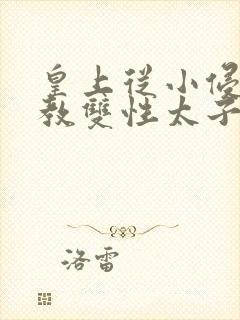 皇上从小侵
教雙性太子
洛雷